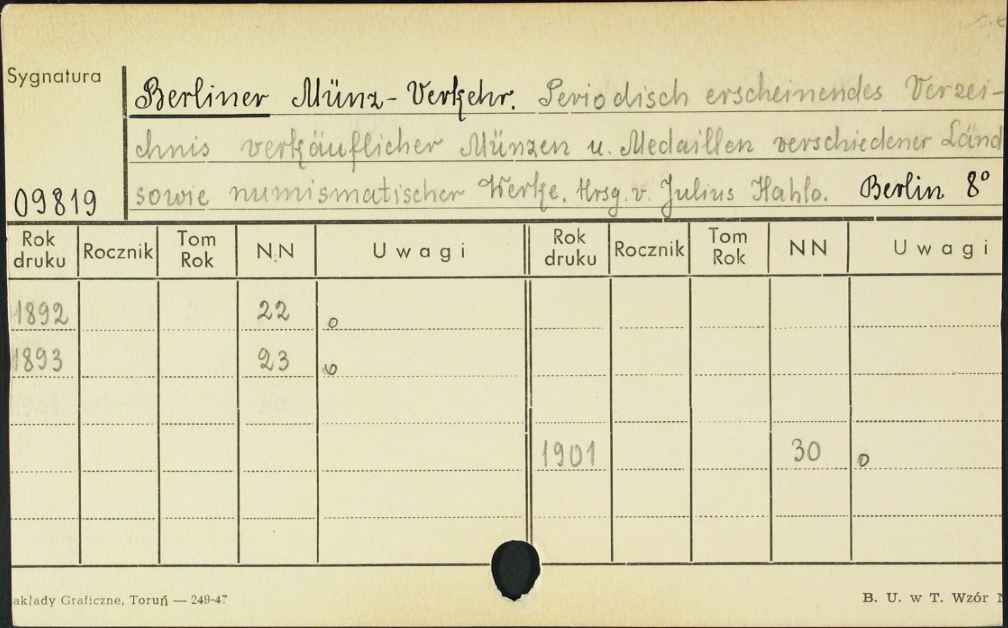 Sygnatura
Berliner Münz-Verkehr. Periodisch erscheinendes Verzei-
chnis verkäuflicher Münzen u. Medaillen verschiedener Länd
09819 sowie numismatischer Werke. Hrsg. v. Julius Hahlo. Berlin 8°
Rok druku Rocznik Tom Rok N.N Uwagi Rok druku Rocznik Tom Rok NN Uwagi
1892 22 o
1893 23 o
1901 30 o
akłady Graficzne, Toruń — 249-47 B. U. w T. Wzór